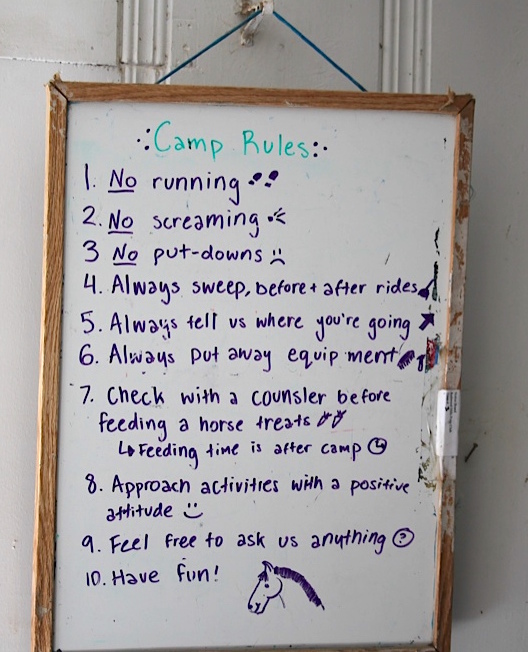 Camp Rules:
1. No running
2. No screaming
3 No put-downs
4. Always sweep, before + after rides
5. Always tell us where you're going
6. Always put away equipment
7. Check with a counsler before
feeding a horse treats
↳ Feeding time is after camp
8. Approach activities with a positive
attitude
9. Feel free to ask us anything ?
10. Have fun!